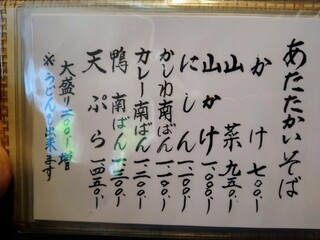 あたたかいそば
かけ 七〇〇.-
山菜 九五〇.-
山かけ 一.〇〇〇.-
にしん 一.一〇〇.-
かしわ南ばん 一.一〇〇.-
カレー南ばん 一.二〇〇.-
鴨南ばん 一.三〇〇.-
天ぷら 一.四五〇.-
大盛り二〇〇.-増
※うどんも出来ます